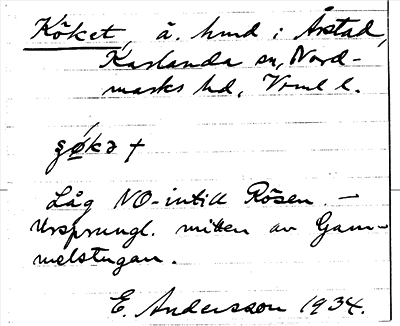 Köket, å. hmd i Årstad,
Karlanda sn, Nord-
marks hd, Vrml l.
Låg NO-intill Rösen. —
Ursprungl. mitten av Gam-
melstugan.
E. Andersson 1934.